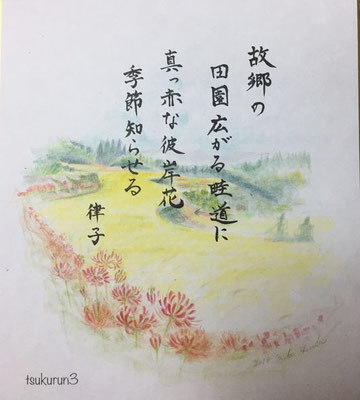 故郷の
田園広がる畦道に
真っ赤な彼岸花
季節知らせる
律子
tsukurun3